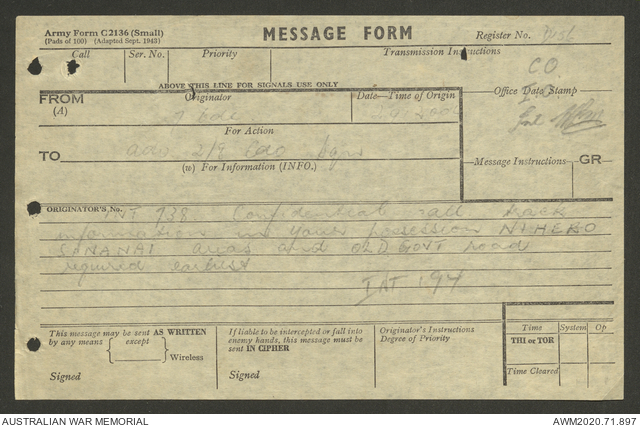 Army Form C2136 (Small)
(Pads of 100) (Adapted Sept. 1943)
MESSAGE FORM
Register No.
Call
Ser. No.
Priority
Transmission Instructions
CO
ABOVE THIS LINE FOR SIGNALS USE ONLY
FROM
(A)
Originator
Date—Time of Origin
Office Date Stamp
For Action
TO
2/9
(W) For Information (INFO.)
Message Instructions
GR
ORIGINATOR'S No.
INT 738 Confidential all track
information in your possession NIHERO
SANANAI areas and OLD GOVT road
required earliest
INT 194
This message may be sent AS WRITTEN
by any means except
Wireless
Signed
If liable to be intercepted or fall into
enemy hands, this message must be
sent IN CIPHER
Signed
Originator's Instructions
Degree of Priority
Time
System
Op
THI or TOR
Time Cleared
AUSTRALIAN WAR MEMORIAL
AWM2020.71.897